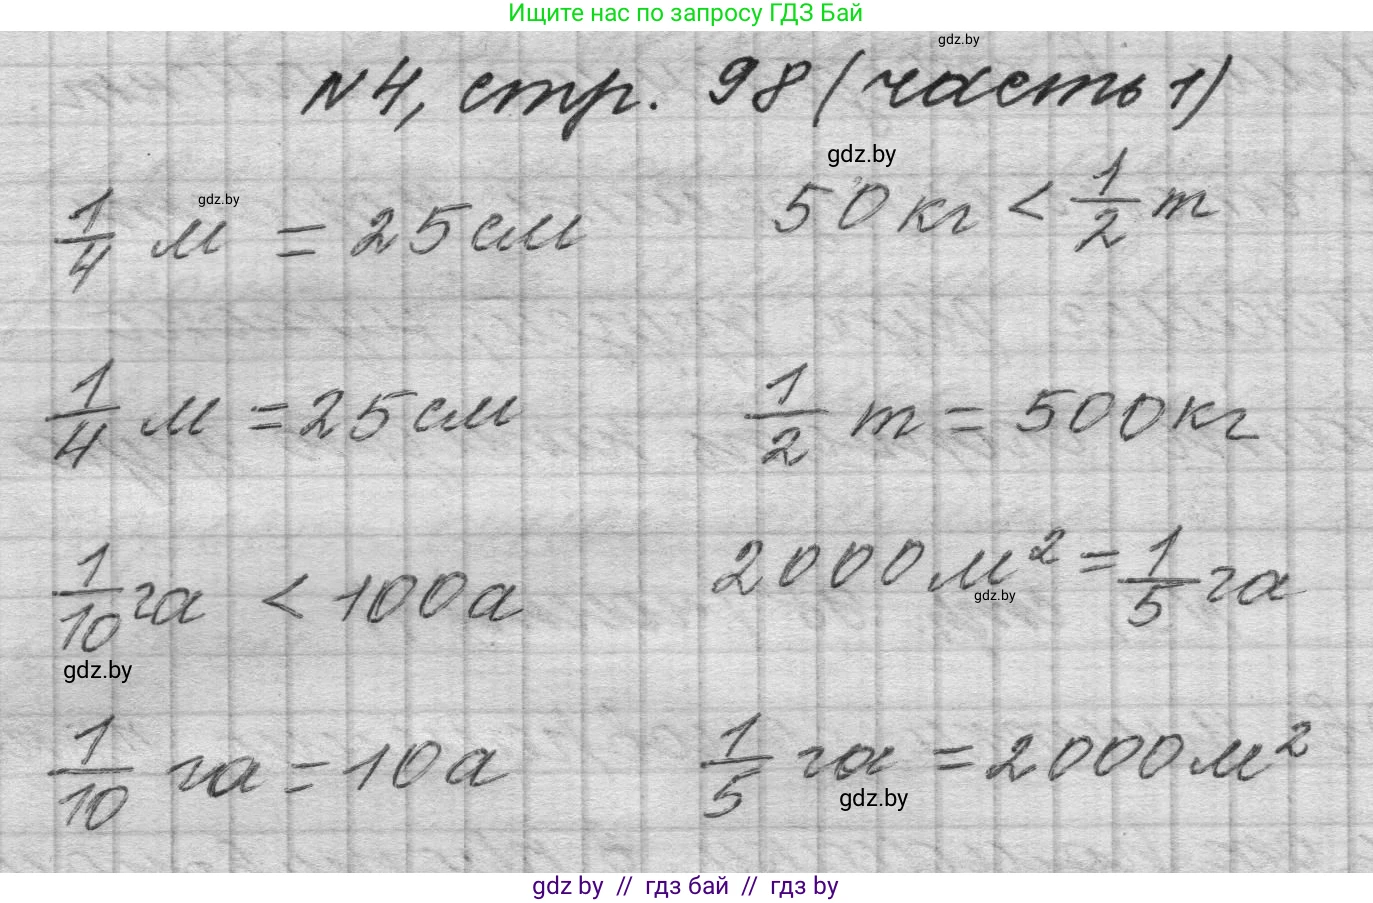 Ищите нас по запросу ГДЗ Бай
gdz.by
N4, стр. 98 (часть 1)
gdz.by
gdz.by
1/4 м = 25 см
50 кг < 1/2 т
1/4 м = 25 см
1/2 т = 500 кг
1/10 га < 100 а
2000 м² = 1/5 га
gdz.by
gdz.by
1/10 га = 10 а
1/5 га = 2000 м²
gdz.by
gdz by // гдз бай // гдз by